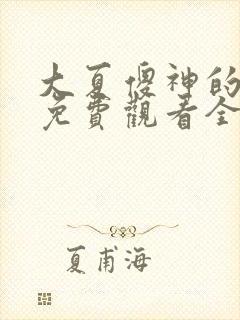 大夏傻神的
免費觀看全
夏甫海